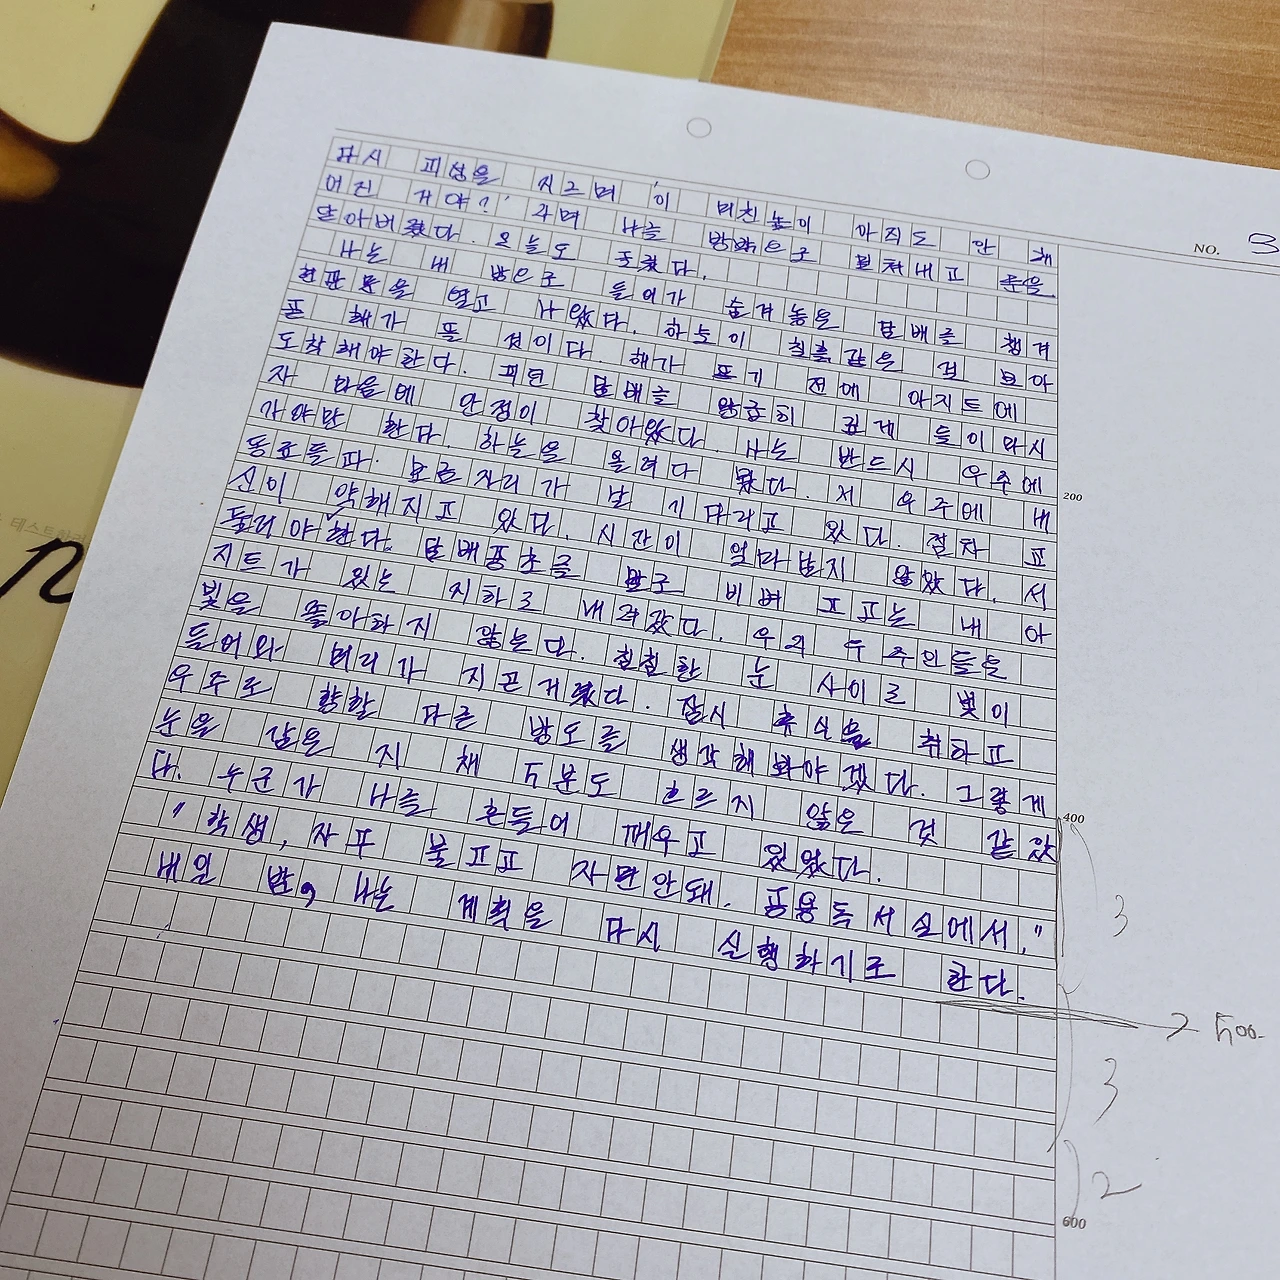 다시 괴성을 지르며 '이 미친놈이 아직도 안 헤
어진 거야?' 라며 나를 방밖으로 밀쳐내고 문을
닫아버렸다. 오늘도 도졌다.
나는 내 방으로 들어가 숨겨놓은 담배를 챙겨
현관문을 열고 나왔다. 하늘이 칠흑같은 걸 보아
곧 해가 뜰 것이다. 해가 뜨기 전에 아지트에
도착해야한다. 피던 담배를 황급히 깊게 들이마시
자 마음에 안정이 찾아왔다. 나는 반드시 우주에
가야만 한다. 하늘을 올려다 봤다. 저 우주에 내
동료들과 보금자리가 날 기다리고 있다. 점차 교
신이 약해지고 있다. 시간이 얼마남지 않았다. 서
둘러야 한다. 담배꽁초를 발로 비벼 끄고는 내 아
지트가 있는 지하로 내려갔다. 우리 우주인들은
빛을 좋아하지 않는다. 침침한 눈 사이로 빛이
들어와 머리가 지끈거렸다. 잠시 휴식을 취하고
우주로 향할 다른 방도를 생각해봐야겠다. 그렇게
눈을 감은 지 채 5분도 흐르지 않은 것 같았
다. 누군가 나를 흔들어 깨우고 있었다.
"학생, 자꾸 불끄고 자면안돼. 공용독서실에서."
내일 밤, 나는 계획을 다시 실행하기로 한다.
NO. 3
200
400
3
→ 500
3
2
600